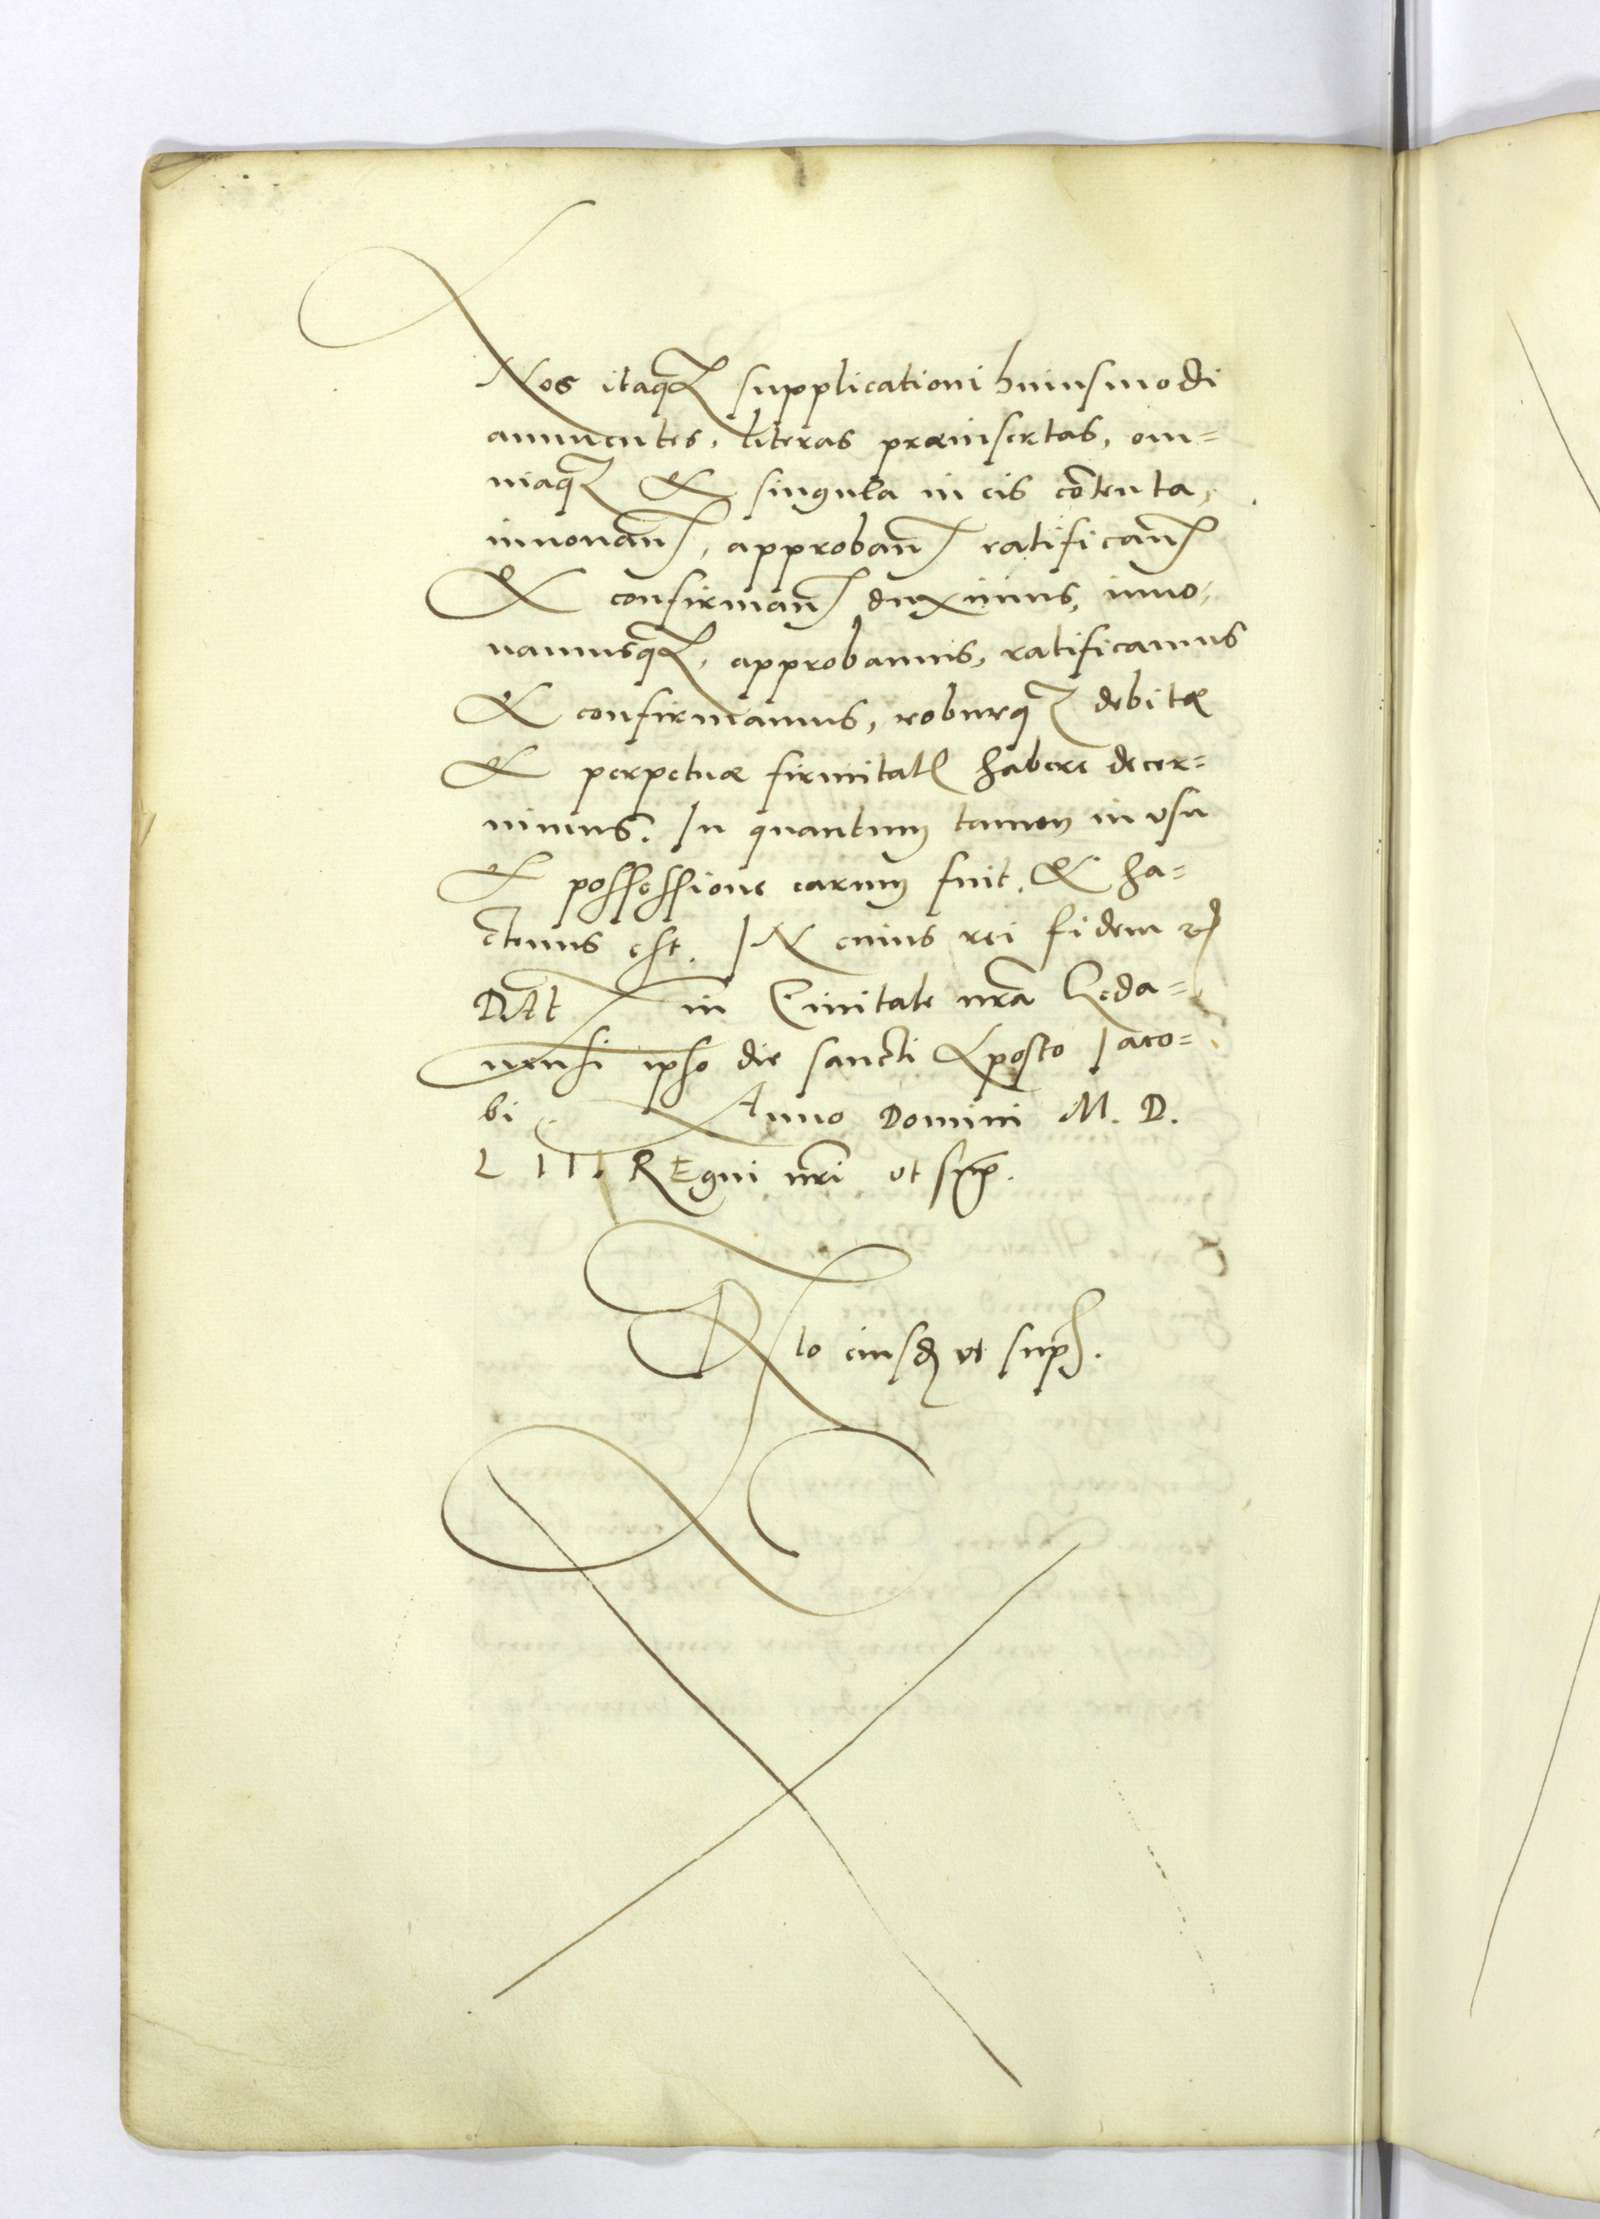 Nos itaq₃ supplicationi huiusmodi
annuentes, literas præinsertas, om=
niaq₃ & singula in eis cōtenta,
innouan̄, approban̄ ratifican̄
& confirman̄ duximus, inno,
uamusq₃, approbamus, ratificamus
& confirmamus, roburq₃ debitæ
& perpetuæ firmitatꝭ habere decer=
nimus. In quantum tamen in vsu
& possessione earum fuit, & ha=
ctenus est. IN cuius rei fidem ꝛc̄
DAt in Ciuitate nr̄a Geda=
nensi ipso die sancti Aposto Iaco=
bi Anno Domini M. D.
L III REgni nr̄i vt sup̄.
Rlo eiusdē vt sup̄.